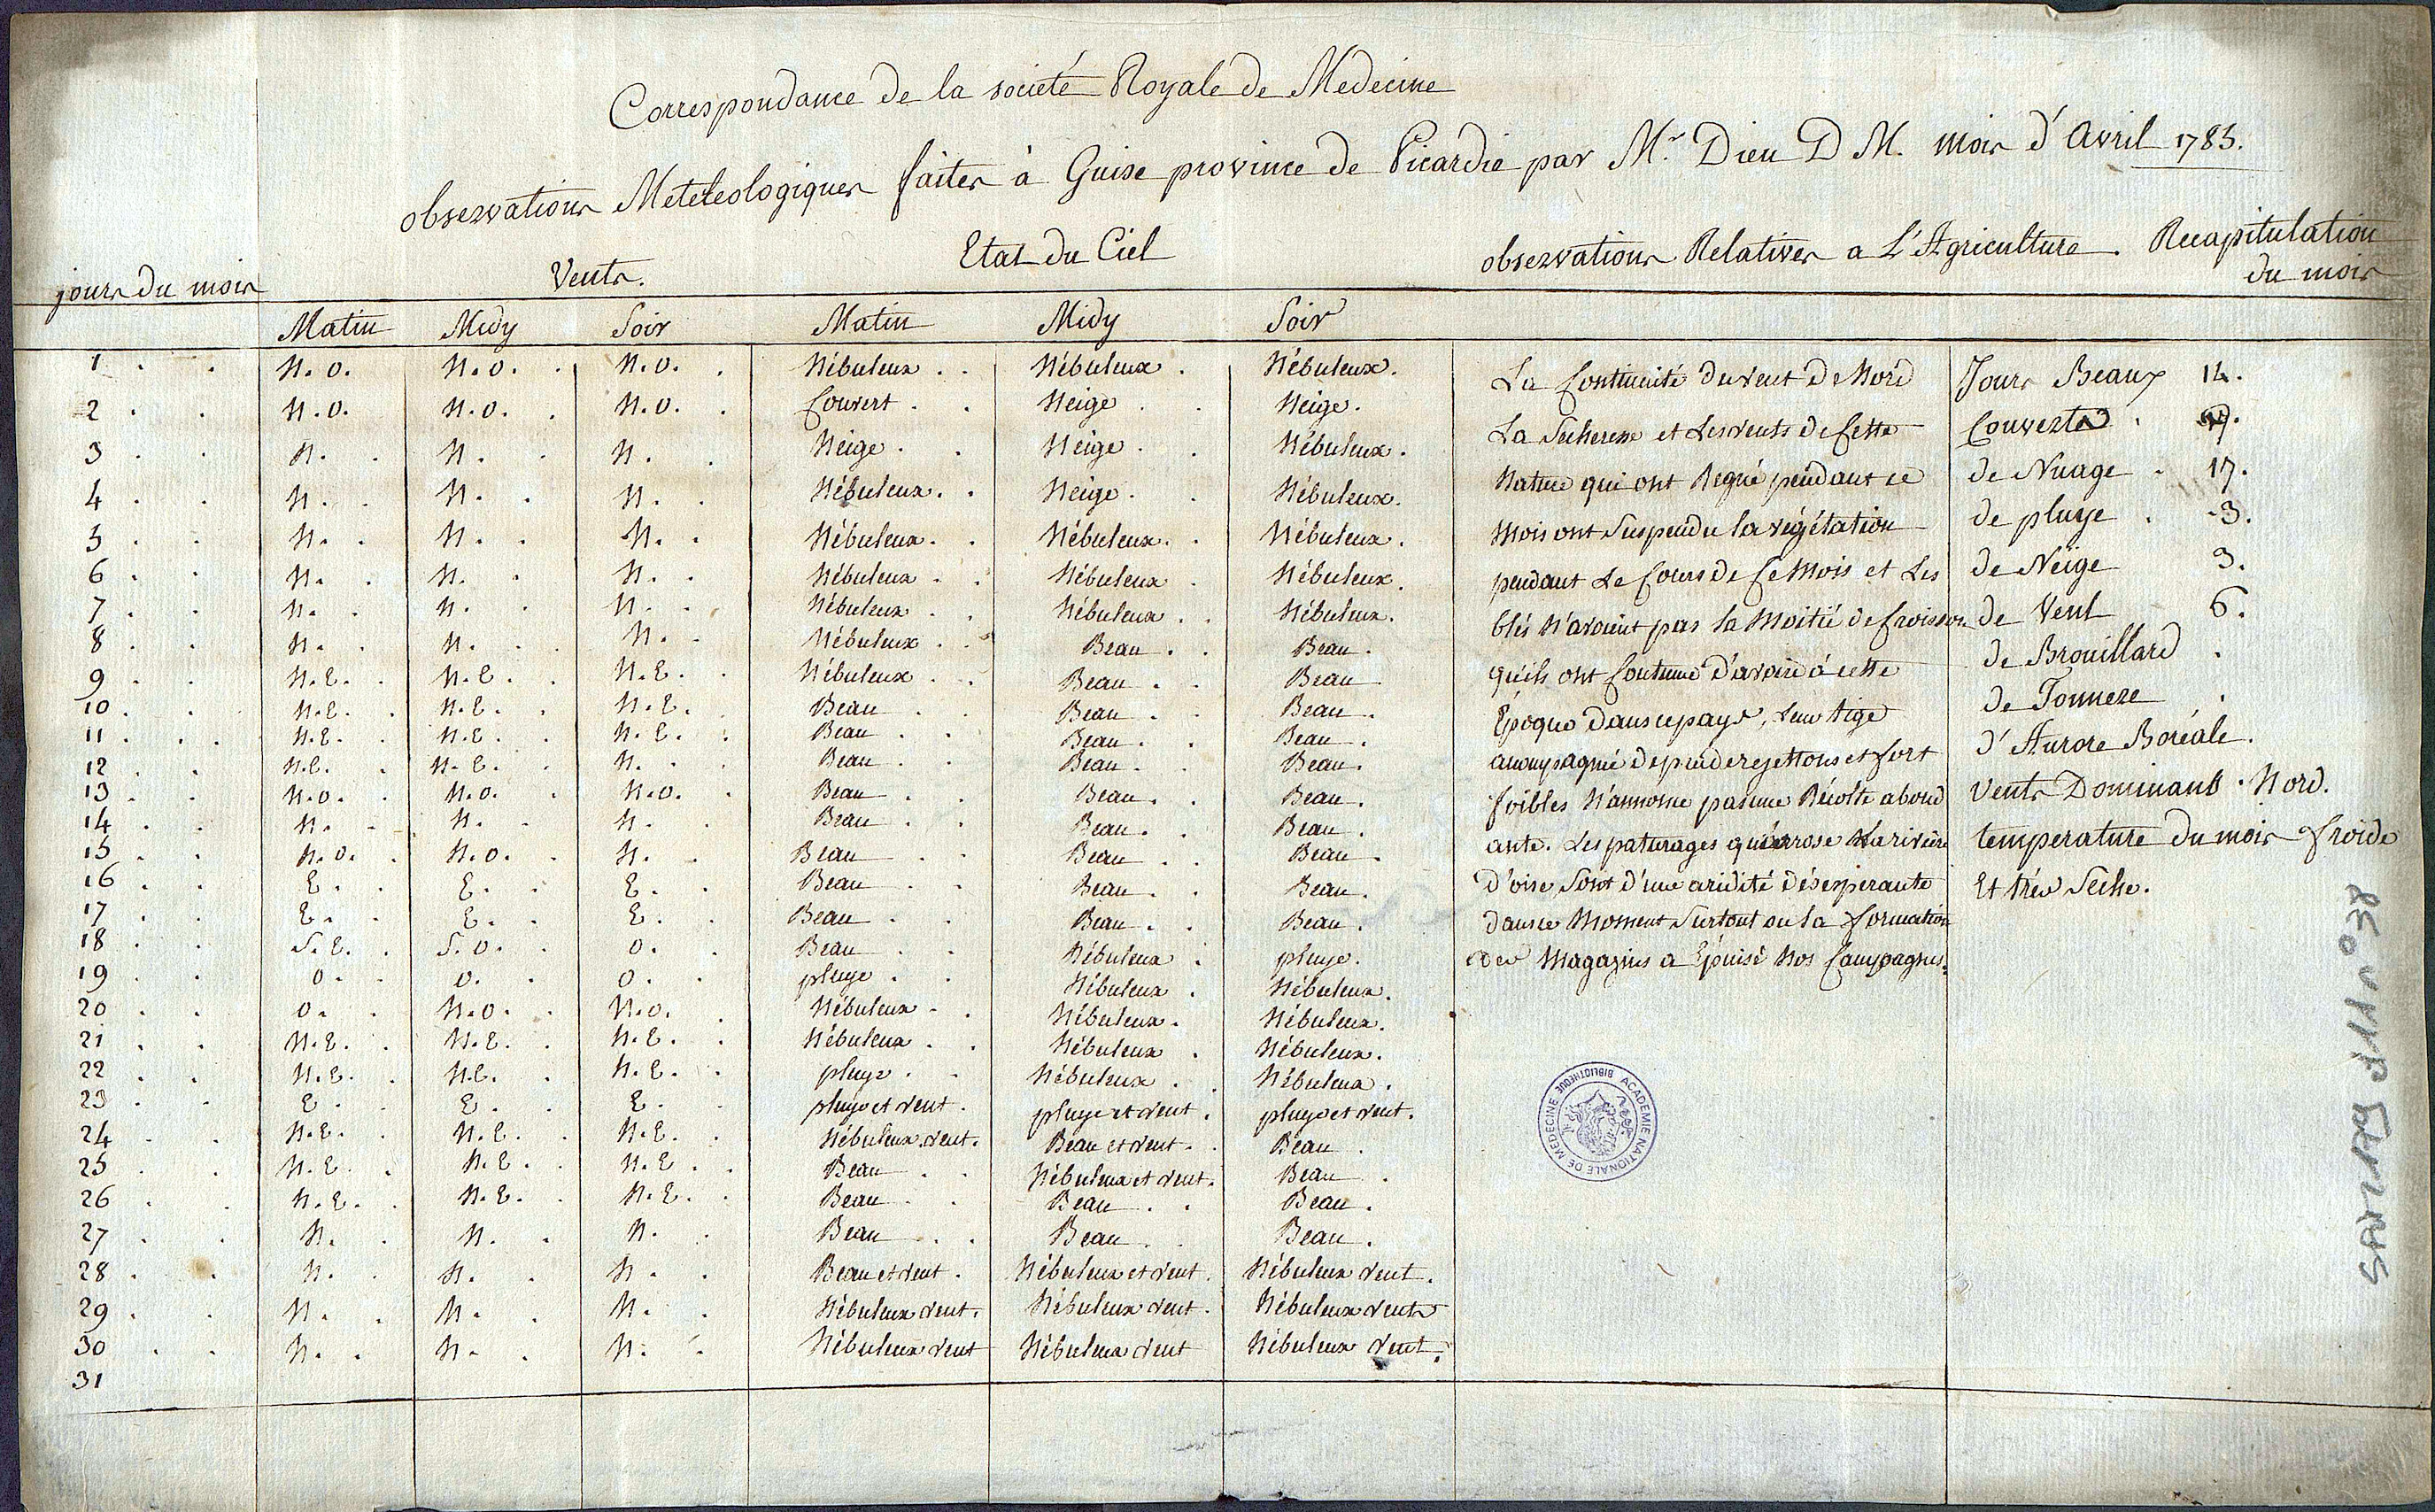 Correspondance de la société Royale de Medecine
observations Meteteologiques faites à Guise province de Picardie par Mr. Dieu D M. mois d'Avril 1785.
jours du mois Vents. Etat du Ciel observations Relatives a L'Agriculture. Recapitulation
du mois
Matin Midy Soir Matin Midy Soir
1 . . N.O. N.O. . N.O. . Nébuleux . . Nébuleux . Nébuleux.
2 . . N.O. N.O. . N.O. . Couvert . . Neige . . Neige.
3 . . N. . N. . N. . Neige . . Neige . . Nébuleux.
4 . . N. . N. . N. . Nébuleux. . Neige . . Nébuleux.
5 . . N. . N. . N. . Nébuleux. . Nébuleux. . Nébuleux.
6 . . N. . N. . N. . Nébuleux . . Nébuleux . Nébuleux.
7 . . N. . N. . N. . Nébuleux . . Nébuleux . . Nébuleux.
8 . . N. . N. . N. . Nébuleux . . Beau . . Beau .
9 . . N.E. . N.E. . N.E. . Nébuleux . . Beau . . Beau
10 . . N.E. . N.E. . N.E. . Beau . . Beau . . Beau .
11 . . N.E. . N.E. . N.E. . Beau . . Beau . . Beau .
12 . . N.E. . N.E. . N. . Beau . . Beau . . Beau.
13 . . N.O. . N.O. . N.O. . Beau . . Beau . . Beau.
14 . . N. . N. . N. . Beau . . Beau . . Beau .
15 . . N.O. . N.O. . N. . Beau . . Beau . . Beau .
16 . . E. . E. . E. . Beau . . Beau . . Beau.
17 . . E. . E. . E. . Beau . . Beau . . Beau .
18 . . S.E. . S.O. . O. . Beau . . Nébuleux . pluye.
19 . . O. . O. . O. . pluye . . Nébuleux . Nébuleux.
20 . . O. . N.O. . N.O. . Nébuleux . . Nébuleux. Nébuleux.
21 . . N.E. . N.E. . N.E. . Nébuleux . . Nébuleux . Nébuleux.
22 . . N.E. . N.E. . N.E. . pluye . . Nébuleux . . Nébuleux .
23 . . E. . E. . E. . pluye et vent . pluye et vent . pluye et vent.
24 . . N.E. . N.E. . N.E. . Nébuleux vent. Beau et vent . . Beau .
25 . . N.E. . N.E. . N.E. . Beau . . Nébuleux et vent. Beau .
26 . . N.E. . N.E. . N.E. . Beau . . Beau . . Beau .
27 . . N. . N. . N. . Beau . . Beau . . Beau .
28 . . N. . N. . N. . Beau et vent . Nébuleux et vent . Nébuleux vent .
29 . . N. . N. . N. . Nébuleux vent. Nébuleux vent . Nébuleux vents
30 . . N. . N. . N. . Nébuleux vent Nébuleux vent Nébuleux vent.
31
La Continuité du vent de Nord
La Secheresse et Les vents de Cette
Nature qui ont Regné pendant ce
Mois ont Suspendu la végétation
pendant Le Cours de Ce Mois et Les
blés N'avoient pas la Moitié de Croisson
qu'ils ont Coutume d'avoir à cette
Époque dans ce pays, Leur tige
accompagnié de peu de rejettons et fort
foibles N'annonce pas une Récolte abond
ante. Les paturages qu'arrose la riviere
d'oise Sont d'une aridité désesperante
dans ce Moment Surtout ou la formation
des Magazins a Épuisé Nos Campagnes.
Jours Beaux 14.
Couverts .
de Nuage . 17.
de pluye . 3.
de Neige 3.
de Vent 6.
de Brouillard .
de Tonnere .
d'Aurore Boréale.
Vents Dominants . Nord.
temperature du mois froide
Et très Seche.
ACADEMIE NATIONALE DE MEDECINE BIBLIOTHEQUE
SRM 179 d 11 n° 38